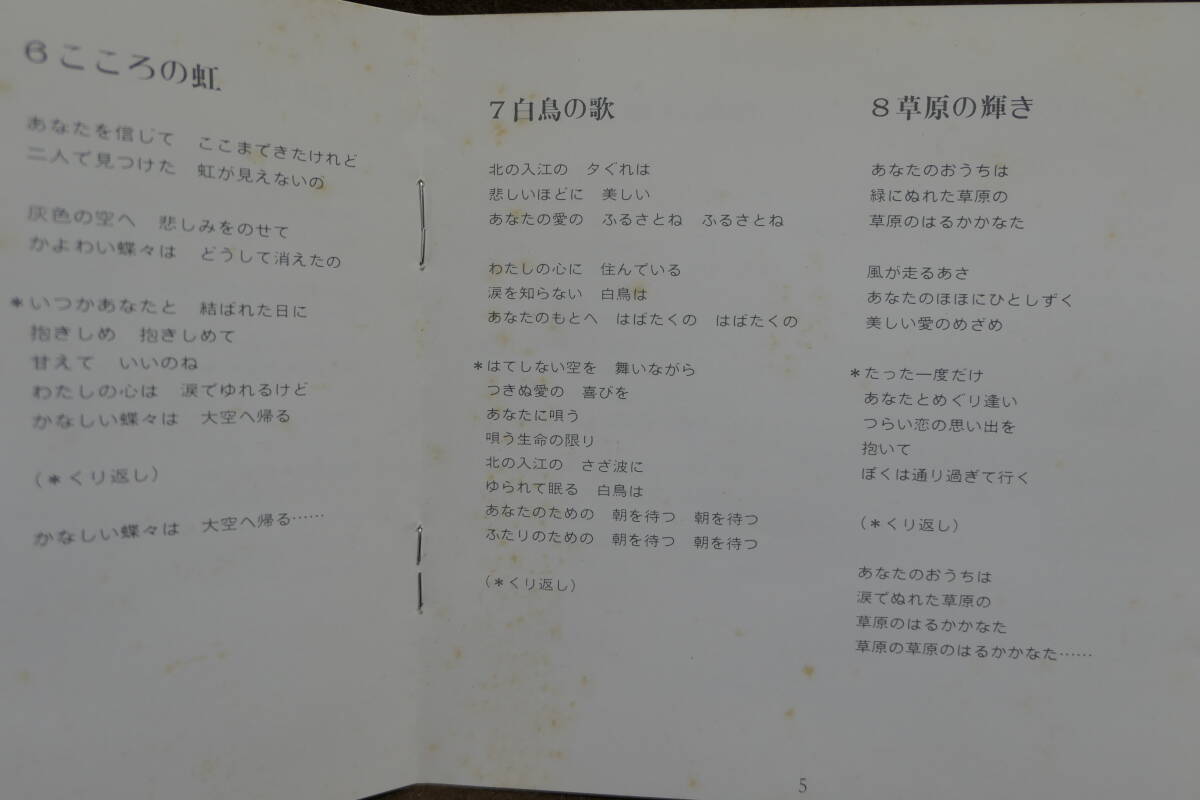 6 こころの虹
あなたを信じて　ここまできたけれど
二人で見つけた　虹が見えないの
灰色の空へ　悲しみをのせて
かよわい蝶々は　どうして消えたの
＊いつかあなたと　結ばれた日に
抱きしめ　抱きしめて
甘えて　いいのね
わたしの心は　涙でゆれるけど
かなしい蝶々は　大空へ帰る
（＊くり返し）
かなしい蝶々は　大空へ帰る……
7 白鳥の歌
北の入江の　夕ぐれは
悲しいほどに　美しい
あなたの愛の　ふるさとね　ふるさとね
わたしの心に　住んでいる
涙を知らない　白鳥は
あなたのもとへ　はばたくの　はばたくの
＊はてしない空を　舞いながら
つきぬ愛の　喜びを
あなたに唄う
唄う生命の限り
北の入江の　さざ波に
ゆられて眠る　白鳥は
あなたのための　朝を待つ　朝を待つ
ふたりのための　朝を待つ　朝を待つ
（＊くり返し）
8 草原の輝き
あなたのおうちは
緑にぬれた草原の
草原のはるかかなた
風が走るあさ
あなたのほほにひとしずく
美しい愛のめざめ
＊たった一度だけ
あなたとめぐり逢い
つらい恋の思い出を
抱いて
ぼくは通り過ぎて行く
（＊くり返し）
あなたのおうちは
涙でぬれた草原の
草原のはるかかなた
草原の草原のはるかかなた……
5